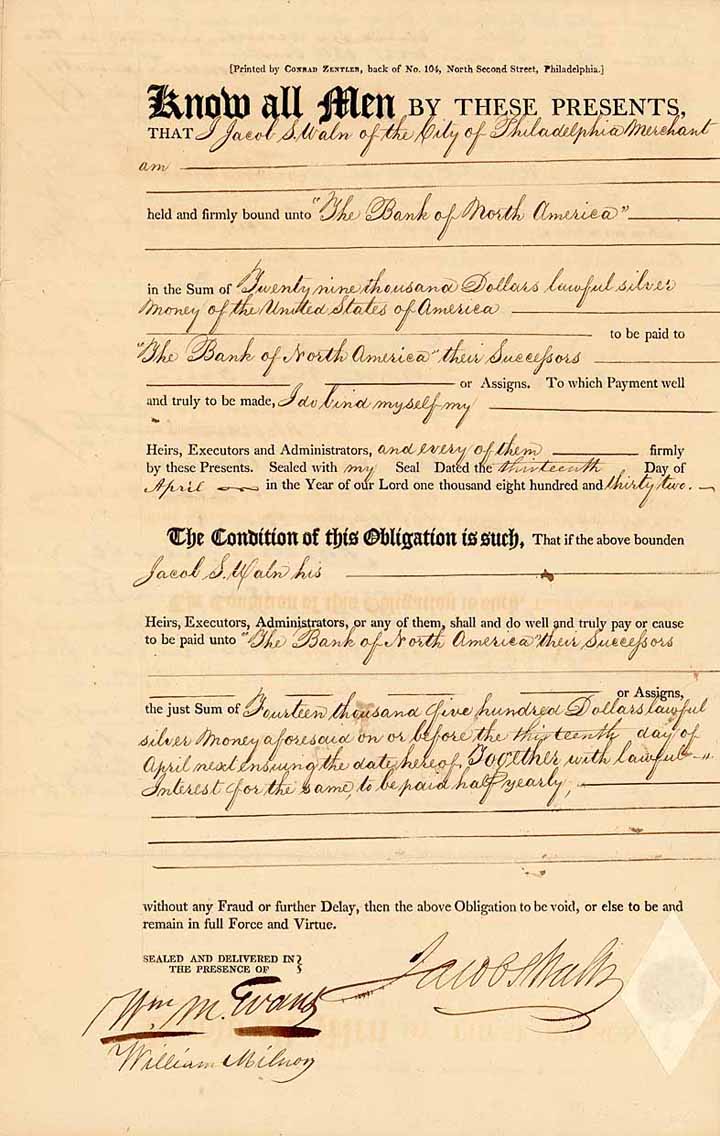 [Printed by CONRAD ZENTLER, back of No. 104, North Second Street, Philadelphia.]
Know all Men BY THESE PRESENTS,
THAT I Jacob S. Waln of the City of Philadelphia Merchant
am
held and firmly bound unto "The Bank of North America"
in the Sum of Twenty nine thousand Dollars lawful silver
Money of the United States of America
to be paid to
"The Bank of North America" their Successors
or Assigns. To which Payment well
and truly to be made, I do bind myself my
Heirs, Executors and Administrators, and every of them firmly
by these Presents. Sealed with my Seal Dated the thirteenth Day of
April in the Year of our Lord one thousand eight hundred and thirty two.
The Condition of this Obligation is such, That if the above bounden
Jacob S. Waln his
Heirs, Executors, Administrators, or any of them, shall and do well and truly pay or cause
to be paid unto "The Bank of North America" their Successors
or Assigns,
the just Sum of Fourteen thousand five hundred Dollars lawful
silver Money aforesaid on or before the thirteenth day of
April next ensuing the date hereof, Together with lawful
Interest for the same, to be paid half yearly,
without any Fraud or further Delay, then the above Obligation to be void, or else to be and
remain in full Force and Virtue.
SEALED AND DELIVERED IN
THE PRESENCE OF
Jacob S Waln
Wm M. Evans
William Milnor